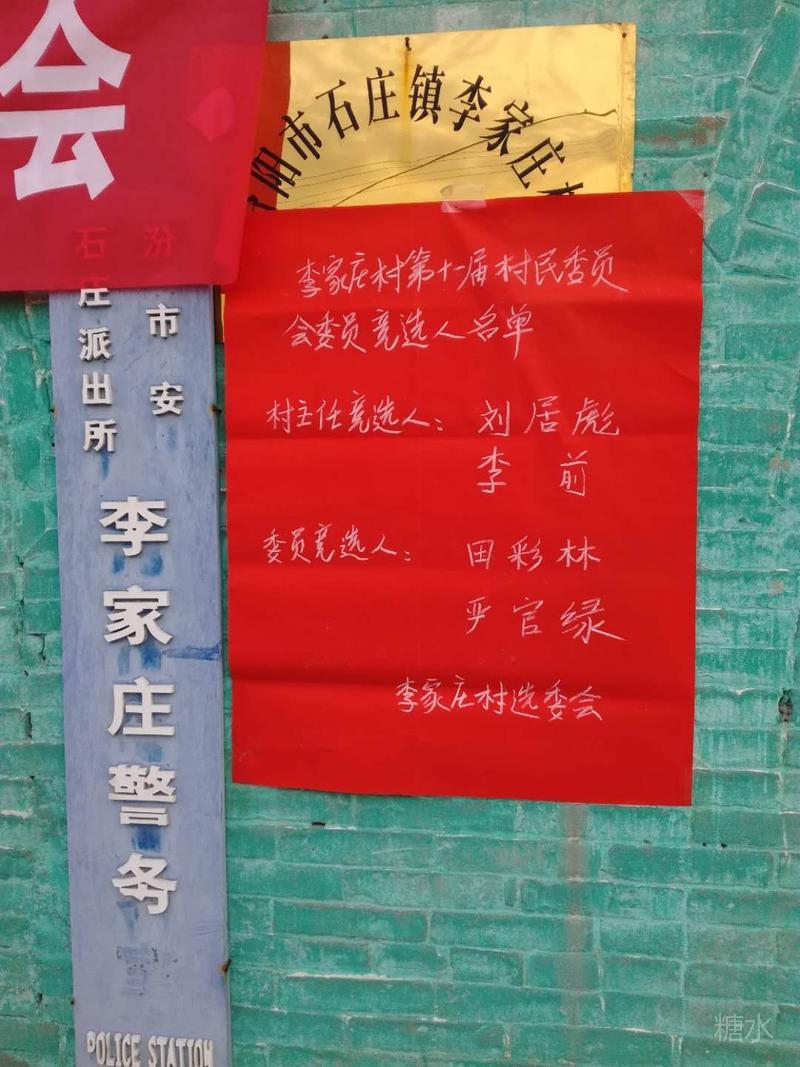 会
阳市石庄镇李家庄村
汾
市安
石庄派出所
李家庄警务
POLICE STATION
李家庄村第十一届村民委员
会委员竞选人名单
村主任竞选人：刘居彪
李前
委员竞选人：田彩林
严官绿
李家庄村选委会
糖水